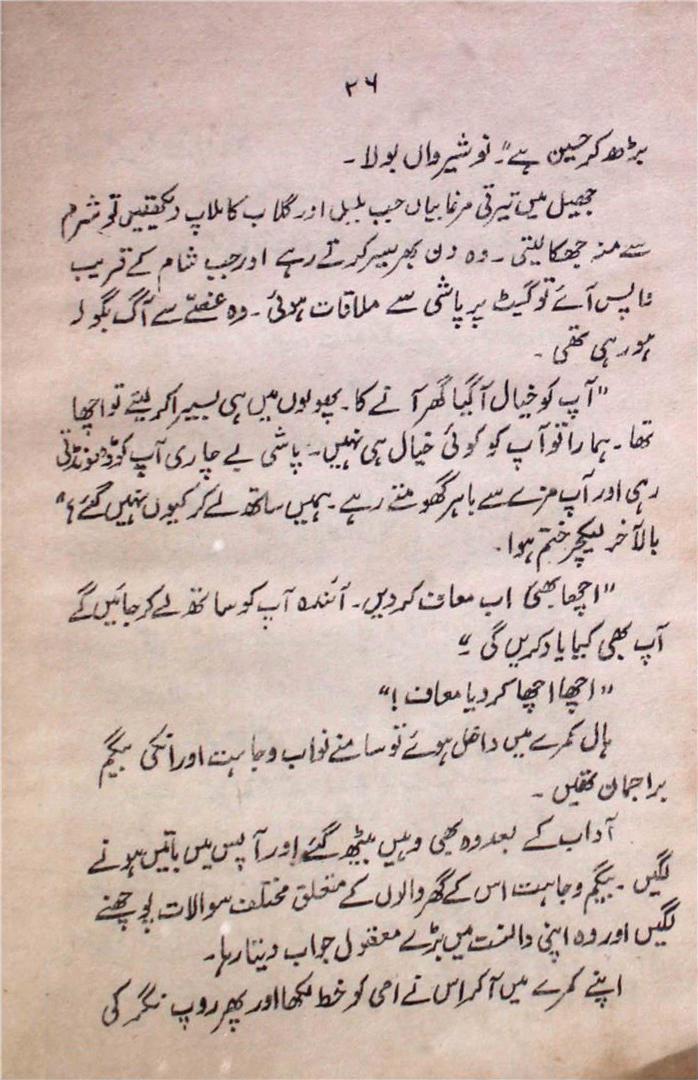 ۲۶
بڑھ کر حسین ہے"۔ نوشیرواں بولا۔
جھیل میں تیرتی مرغابیاں جب بلبل اور گلاب کا ملاپ دیکھتیں تو شرم
سے منہ جھکا لیتی۔ وہ دن بھر سیر کرتے رہے اور جب شام کے قریب
واپس آئے تو گیٹ پر پاشی سے ملاقات ہوئی۔ وہ غصے سے آگ بگولہ
ہو رہی تھی۔
"آپ کو خیال آ گیا گھر آنے کا۔ پھولوں میں ہی بسیرا کر لیتے تو اچھا
تھا۔ ہمارا تو آپ کو کوئی خیال ہی نہیں۔ پاشی بے چاری آپ کو ڈھونڈتی
رہی اور آپ مزے سے باہر گھومتے رہے۔ ہمیں ساتھ لے کر کیوں نہیں گئے؟"
بالآخر لیکچر ختم ہوا۔
"اچھا بھئی اب معاف کر دیں۔ آئندہ آپ کو ساتھ لے کر جائیں گے
آپ بھی کیا یاد کریں گی۔"
"اچھا اچھا کر دیا معاف!"
ہال کمرے میں داخل ہوئے تو سامنے نواب وجاہت اور انکی بیگم
براجمان تھیں۔
آداب کے بعد وہ بھی وہیں بیٹھ گئے اور آپس میں باتیں ہونے
لگیں۔ بیگم وجاہت اس کے گھر والوں کے متعلق مختلف سوالات پوچھنے
لگیں اور وہ اپنی دانست میں بڑے معقول جواب دیتا رہا۔
اپنے کمرے میں آ کر اس نے امی کو خط لکھا اور پھر روپ نگر کی